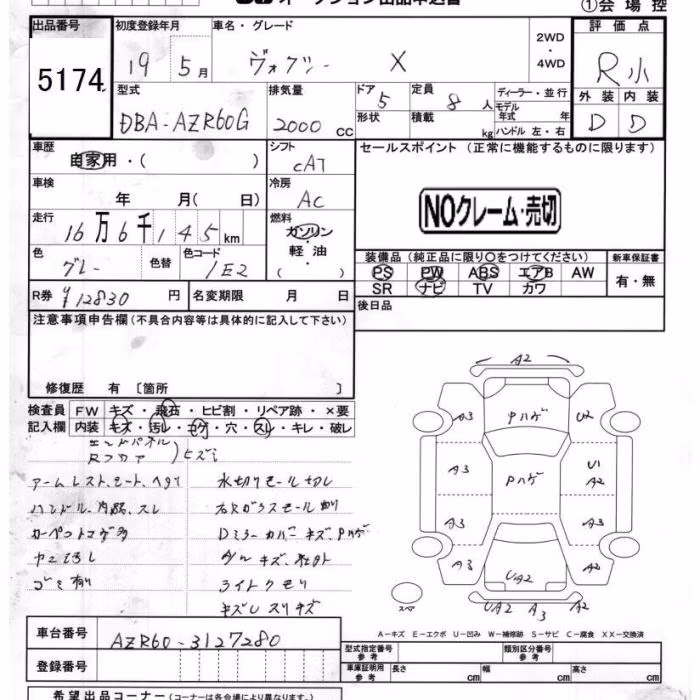 ①会場控
出品番号 初度登録年月 車名・グレード 2WD・4WD 評価点
5174 19年 5月 ヴォクシー X R小
型式 排気量 ドア 定員 ディーラー・並行 外装 内装
DBA-AZR60G 2000cc 5 8人 モデル年式 年 D D
形状 積載 kg ハンドル 左・右
車歴 自家用・( ) シフト CAT セールスポイント (正常に機能するものに限ります)
車検 年 月(日) 冷房 AC
NOクレーム・売切
走行 16万6千145km 燃料 ガソリン 軽・油 ( )
色 グレー 色替 色コード 1E2
装備品 (純正品に限り〇をつけてください) 新車保証書
PS PW ABS エアB AW 有・無
SR ナビ TV カワ
R券 ¥12830円 名変期限 月 日 後日品
注意事項申告欄(不具合内容等は具体的に記入して下さい)
修復歴 有 [箇所 ]
検査員 FW キズ・飛石・ヒビ割・リペア跡・×要
記入欄 内装 キズ・汚レ・コゲ・穴・スレ・キレ・破レ
エンドパネル
Rフロア ヒズミ
アームレスト、シート、ヘタリ 水切リモール切レ
ハンドル、内張、スレ 右Rガラスモール
カーペットコゲ多 Dミラーカバーキズ、Pハゲ
ヤニ汚レ キズ、
ゴミ有リ ライトクモリ
キズUスリキズ
A2
A3 Pハゲ U2
A3 Pハゲ U1
A2
A3 A3
A3 UA2 A2
スペア UA2 A3 A2
A-キズ E-エクボ U-凹み W-補修跡 S-サビ C-腐食 XX-交換済
車台番号 AZR60-3127280
型式指定番号 参考 類別区分番号 参考
登録番号 車庫証明用 参考 長さ cm 幅 cm 高さ cm
希望出品コーナー (コーナーは各会場により異なります。)